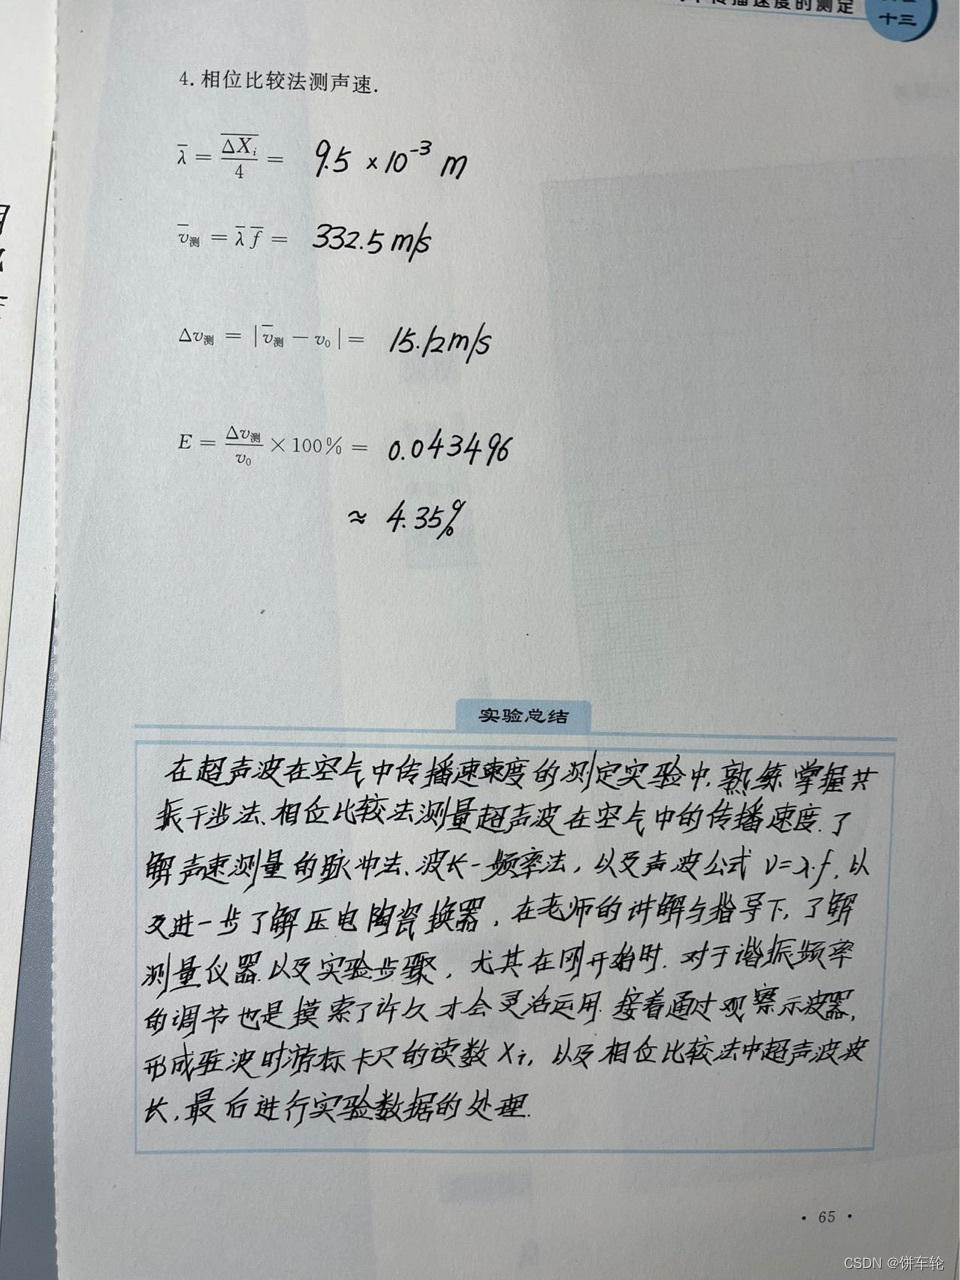 传播速度的测定
十三
4. 相位比较法测声速.
λ̄ = ΔX̄ᵢ/4 = 9.5 ×10⁻³ m
v̄测 = λ̄ f̄ = 332.5 m/s
Δv测 = |v̄测 − v₀| = 15.12 m/s
E = Δv测/v₀ × 100% = 0.043496
≈ 4.35%
实验总结
在超声波在空气中传播速度的测定实验中,熟练掌握共
振干涉法、相位比较法测量超声波在空气中的传播速度.了
解声速测量的脉冲法、波长-频率法,以及声波公式 v=λ·f,以
及进一步了解压电陶瓷换器,在老师的讲解与指导下,了解
测量仪器以及实验步骤,尤其在刚开始时.对于谐振频率
的调节也是摸索了许久才会灵活运用.接着通过观察示波器,
形成驻波时游标卡尺的读数 Xi,以及相位比较法中超声波波
长,最后进行实验数据的处理.
· 65 ·
CSDN @饼车轮